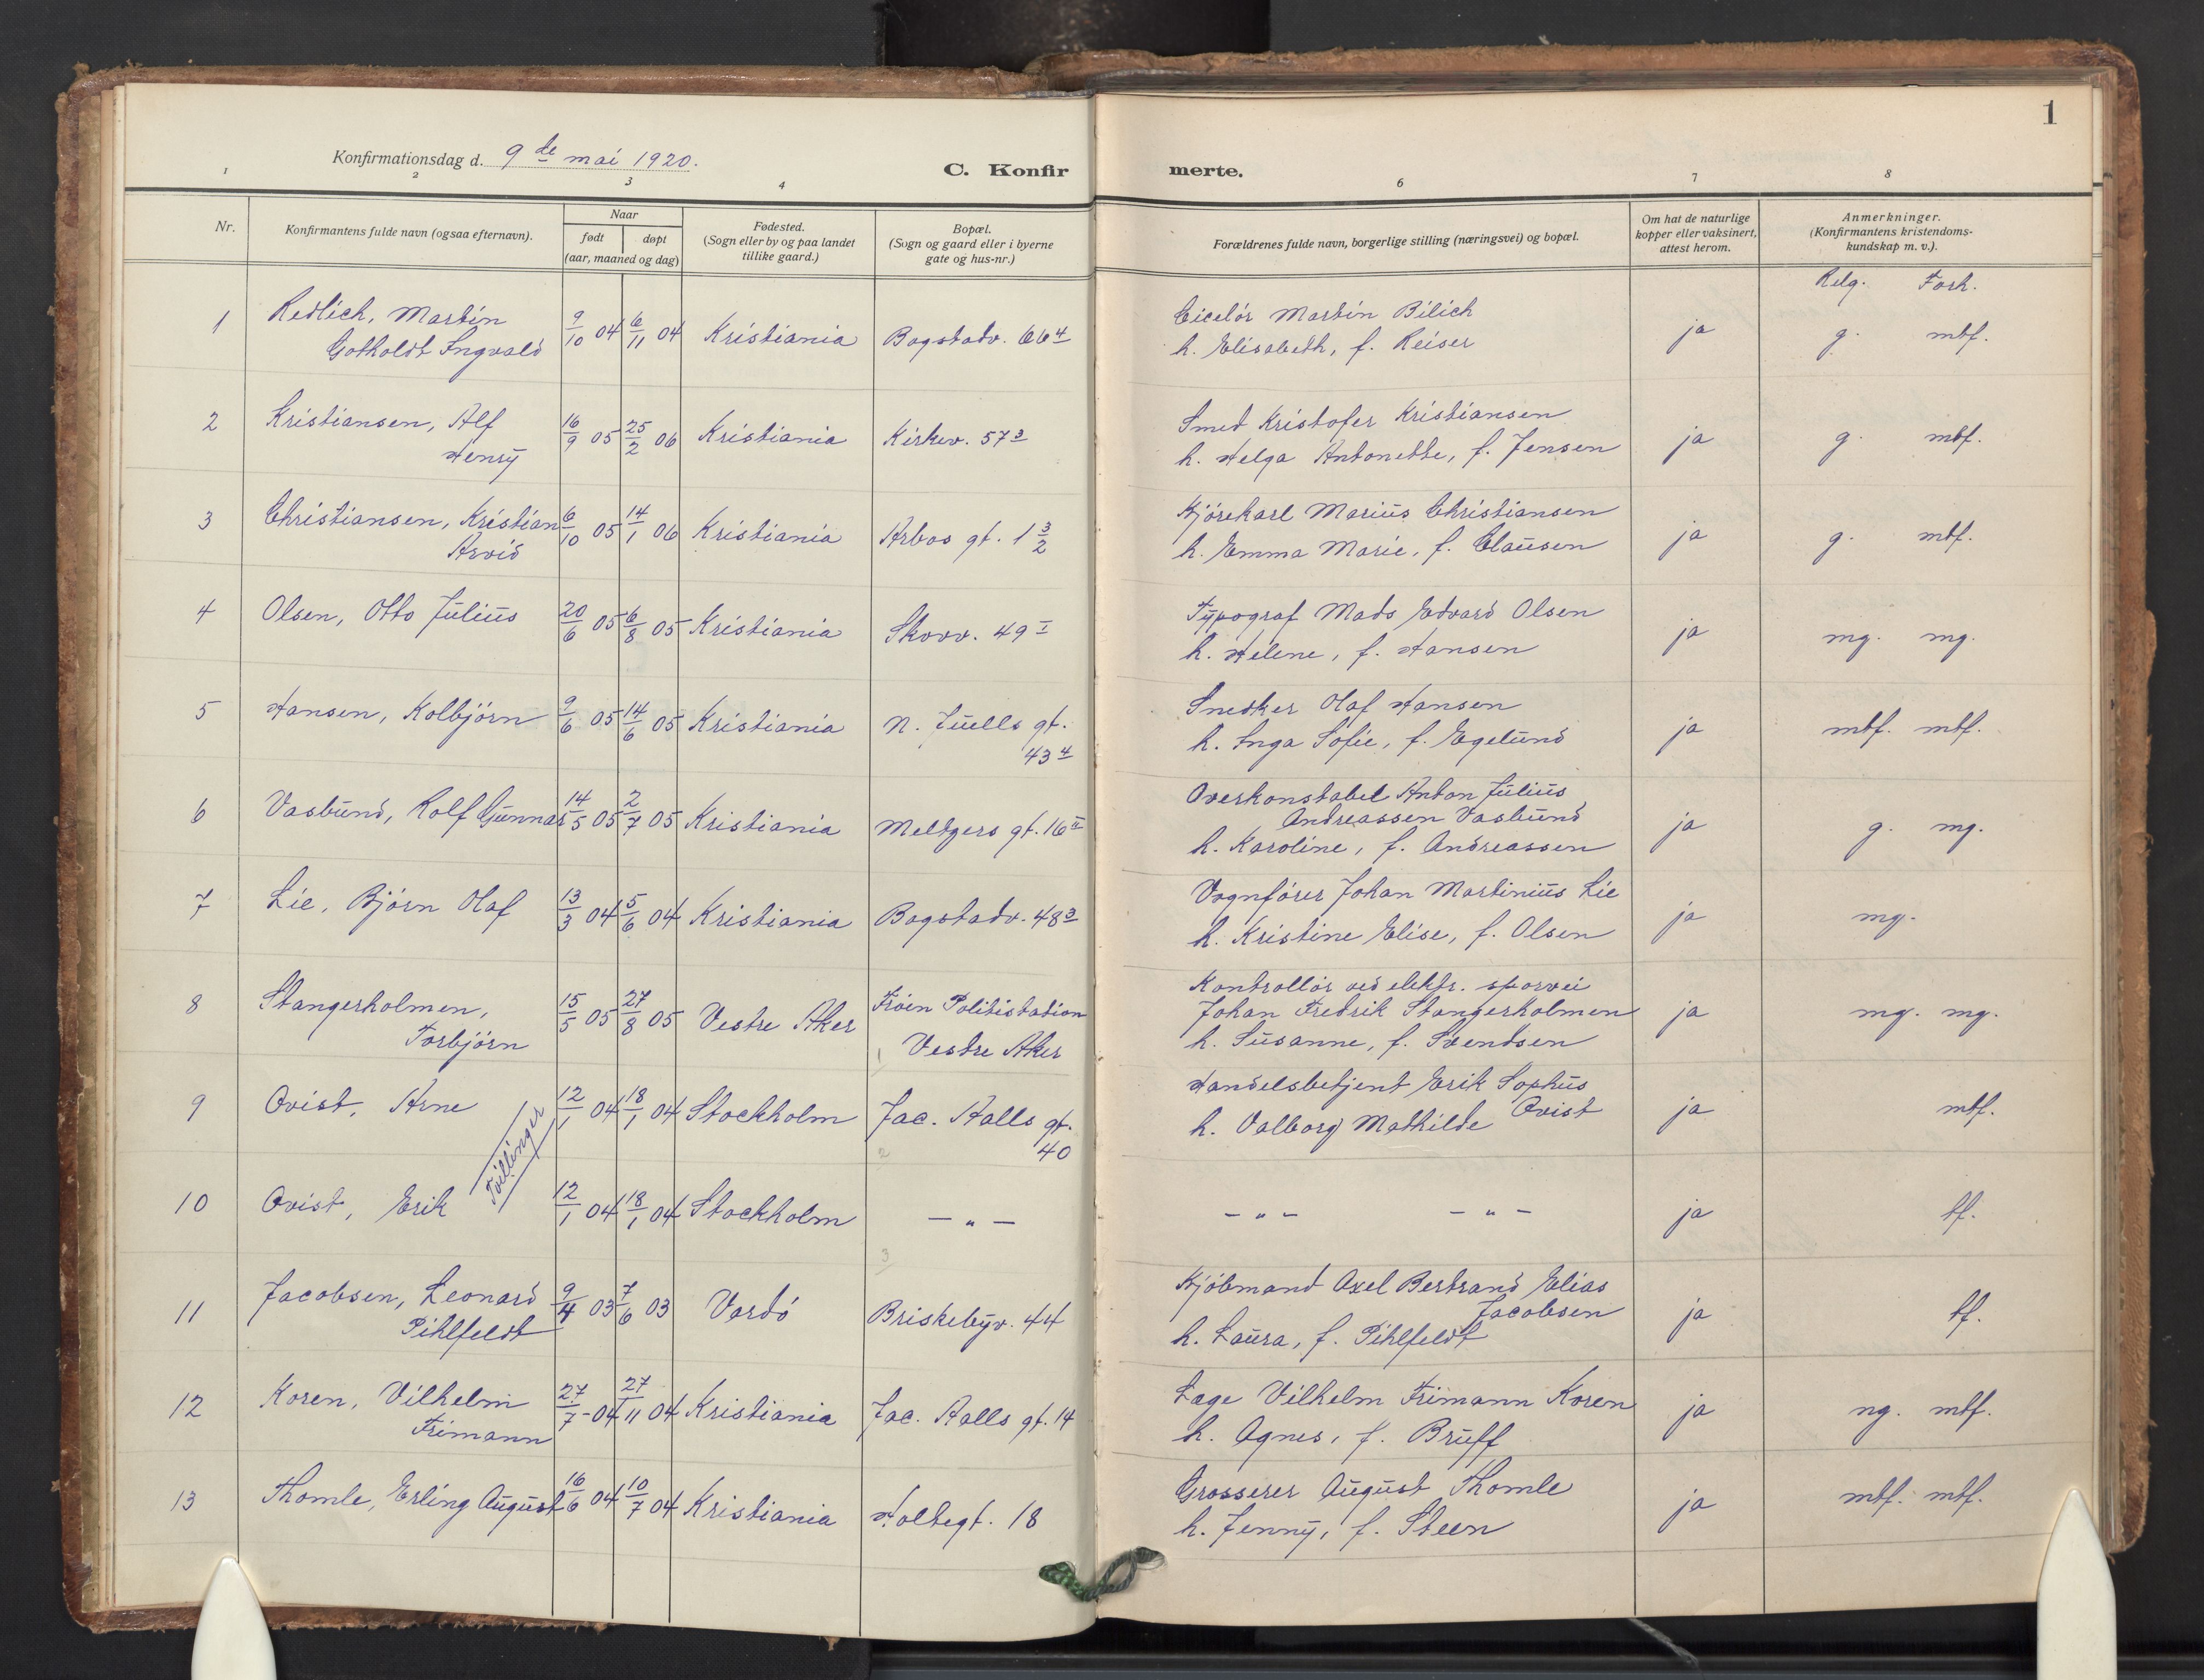 1
Konfirmationsdag d. 9de mai 1920.
C. Konfirmerte.
1 2 3 4 6 7 8
Nr.
Konfirmantens fulde navn (ogsaa efternavn).
Naar
født døpt
(aar, maaned og dag)
Fødested.
(Sogn eller by og paa landet
tillike gaard.)
Bopæl.
(Sogn og gaard eller i byerne
gate og hus-nr.)
Forældrenes fulde navn, borgerlige stilling (næringsvei) og bopæl.
Om hat de naturlige
kopper eller vaksinert,
attest herom.
Anmerkninger.
(Konfirmantens kristendoms-
kundskap m. v.).
Relg. Forh.
1 Redlich, Martin 9/10 04 6/11 04 Kristiania Bogstadv. 66 4 Ciselør Martin ja g. mtf.
Gotholdt Ingvald h. Elisabeth, f. Reiser
2 Kristiansen, Alf 16/9 05 25/2 06 Kristiania Kirkev. 57 3 Smed Kristofer Kristiansen ja g. mtf.
Henry h. Helga Antonette, f. Jensen
3 Christiansen, Kristian 6/10 05 14/1 06 Kristiania Arbos gt. 1 3/2 Kjørekarl Marius Christiansen ja g. mtf.
Arvid h. Emma Marie, f. Clausen
4 Olsen, Otto Julius 20/6 05 6/8 05 Kristiania Skovv. 49 I Typograf Mads Edvard Olsen ja mg. mg.
h. Helene, f. Hansen
5 Hansen, Kolbjørn 9/6 05 14/6 05 Kristiania N. Juells gt. Snedker Olaf Hansen ja mtf. mtf.
43 4 h. Inga Sofie, f. Egelund
6 Vasbund, Rolf Gunnar 14/5 05 2/7 05 Kristiania Meltzers gt. 16 Overkonstabel Anton Julius ja g. mg.
Andreassen Vasbund
h. Karoline, f. Andreassen
7 Lie, Bjørn Olaf 13/3 04 5/6 04 Kristiania Bogstadv. 48 3 Vognfører Johan Martinius Lie ja mg.
h. Kristine Elise, f. Olsen
8 Stangerholmen, 15/5 05 27/8 05 Vestre Aker Frøen Politistation Kontrollør ved elektr. sporvei ja mg. mg.
Torbjørn Vestre Aker Johan Fredrik Stangerholmen
h. Susanne, f. Svendsen
9 Qvist, Arne 12/1 04 18/1 04 Stockholm Jac. Aalls gt. Handelsbetjent Erik Sophus ja mtf.
Tvillinger 40 Qvist
h. Valborg Mathilde
10 Qvist, Erik 12/1 04 18/1 04 Stockholm — „ — — „ — — „ — ja tf.
11 Jacobsen, Leonard 9/4 03 7/6 03 Vardø Briskebyv. 44 Kjøbmand Axel Bertrand Elias ja tf.
Pihlfeldt Jacobsen
h. Laura, f. Pihlfeldt
12 Koren, Vilhelm 27/7 - 04 27/11 04 Kristiania Jac. Aalls gt. 14 Læge Vilhelm Frimann Koren ja ng. mtf.
Frimann h. Agnes, f. Bruff
13 Thomle, Erling August 16/6 04 10/7 04 Kristiania Holtegt. 18 Grosserer August Thomle ja mtf. mtf.
h. Jenny, f. Steen